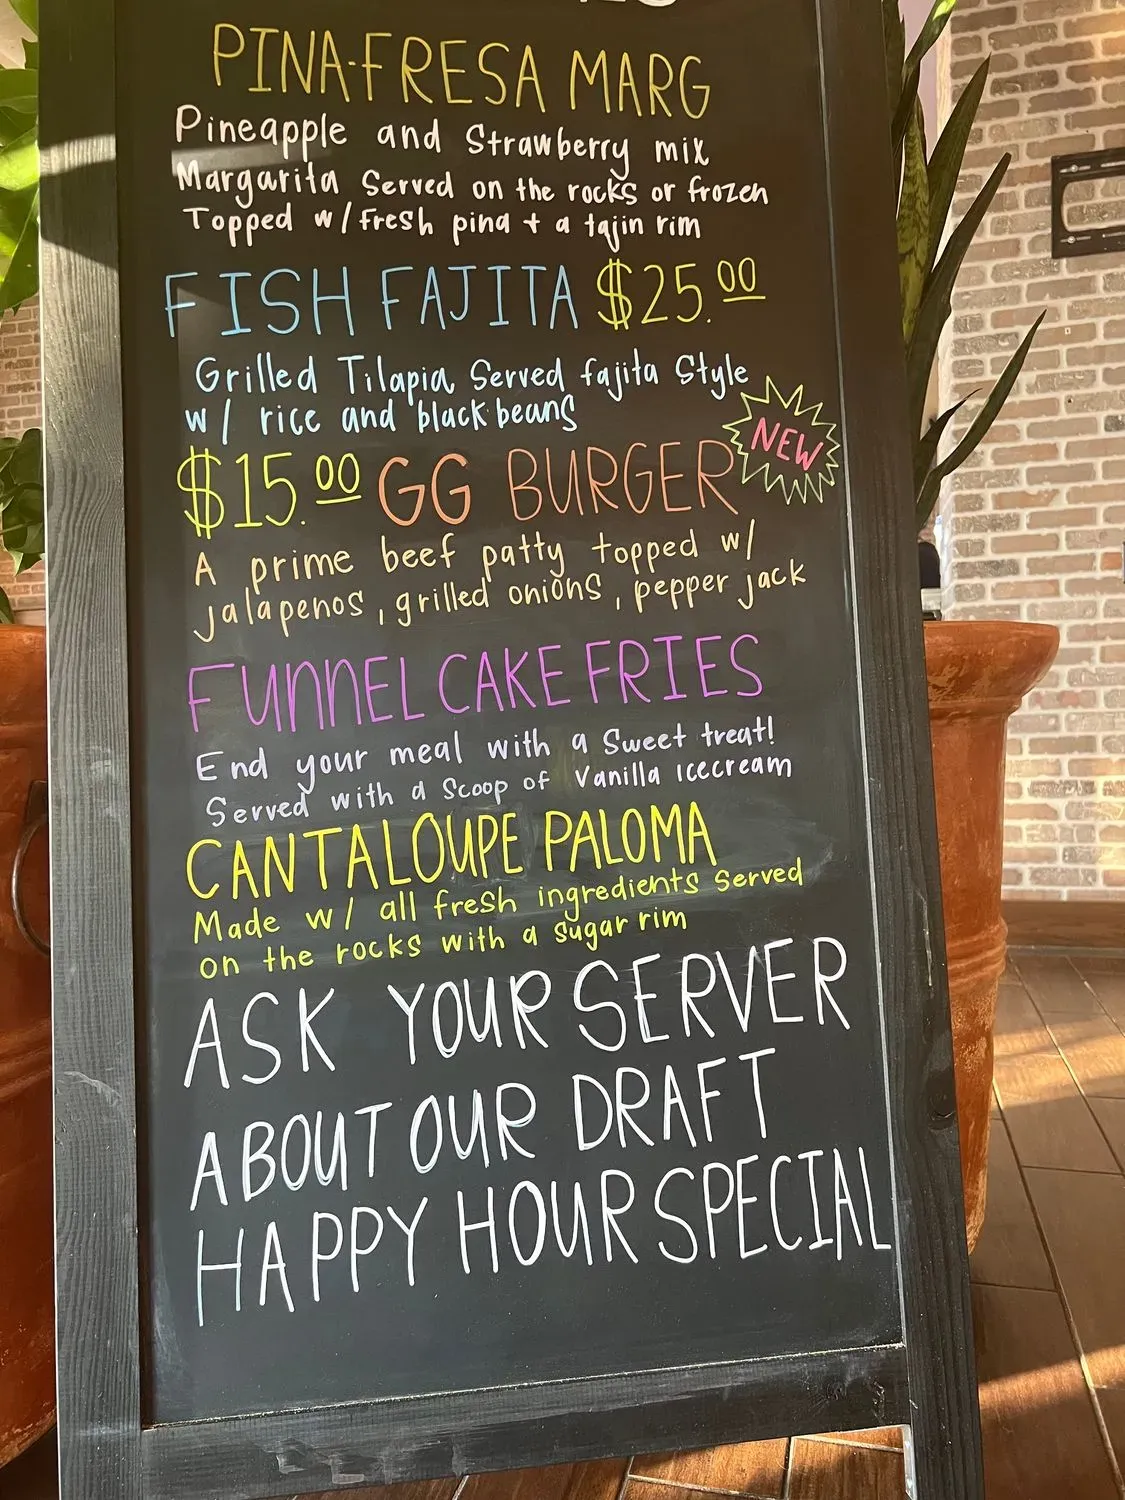 PINA-FRESA MARG
Pineapple and Strawberry mix
Margarita Served on the rocks or frozen
Topped w/ fresh pina + a tajin rim
FISH FAJITA $25.00
Grilled Tilapia Served fajita Style
w/ rice and black beans
NEW
$15.00 GG BURGER
A prime beef patty topped w/
jalapenos, grilled onions, pepper jack
FUNNEL CAKE FRIES
End your meal with a Sweet treat!
Served with a Scoop of Vanilla icecream
CANTALOUPE PALOMA
Made w/ all fresh ingredients served
on the rocks with a sugar rim
ASK YOUR SERVER
ABOUT OUR DRAFT
HAPPY HOUR SPECIAL